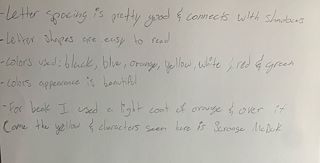 -Letter spacing is pretty good & connects with shadows
-Letter shapes are easy to read
-colors used: black, blue, orange, yellow, white, red & green
-colors appearance is beautiful
-For beak I used a light coat of orange & over it
Come the yellow & characters seen here is Scrooge McDuk